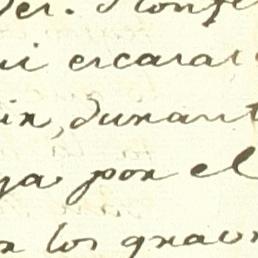 der. Monse
ui escaras
in, durant
ya por el
n los grav